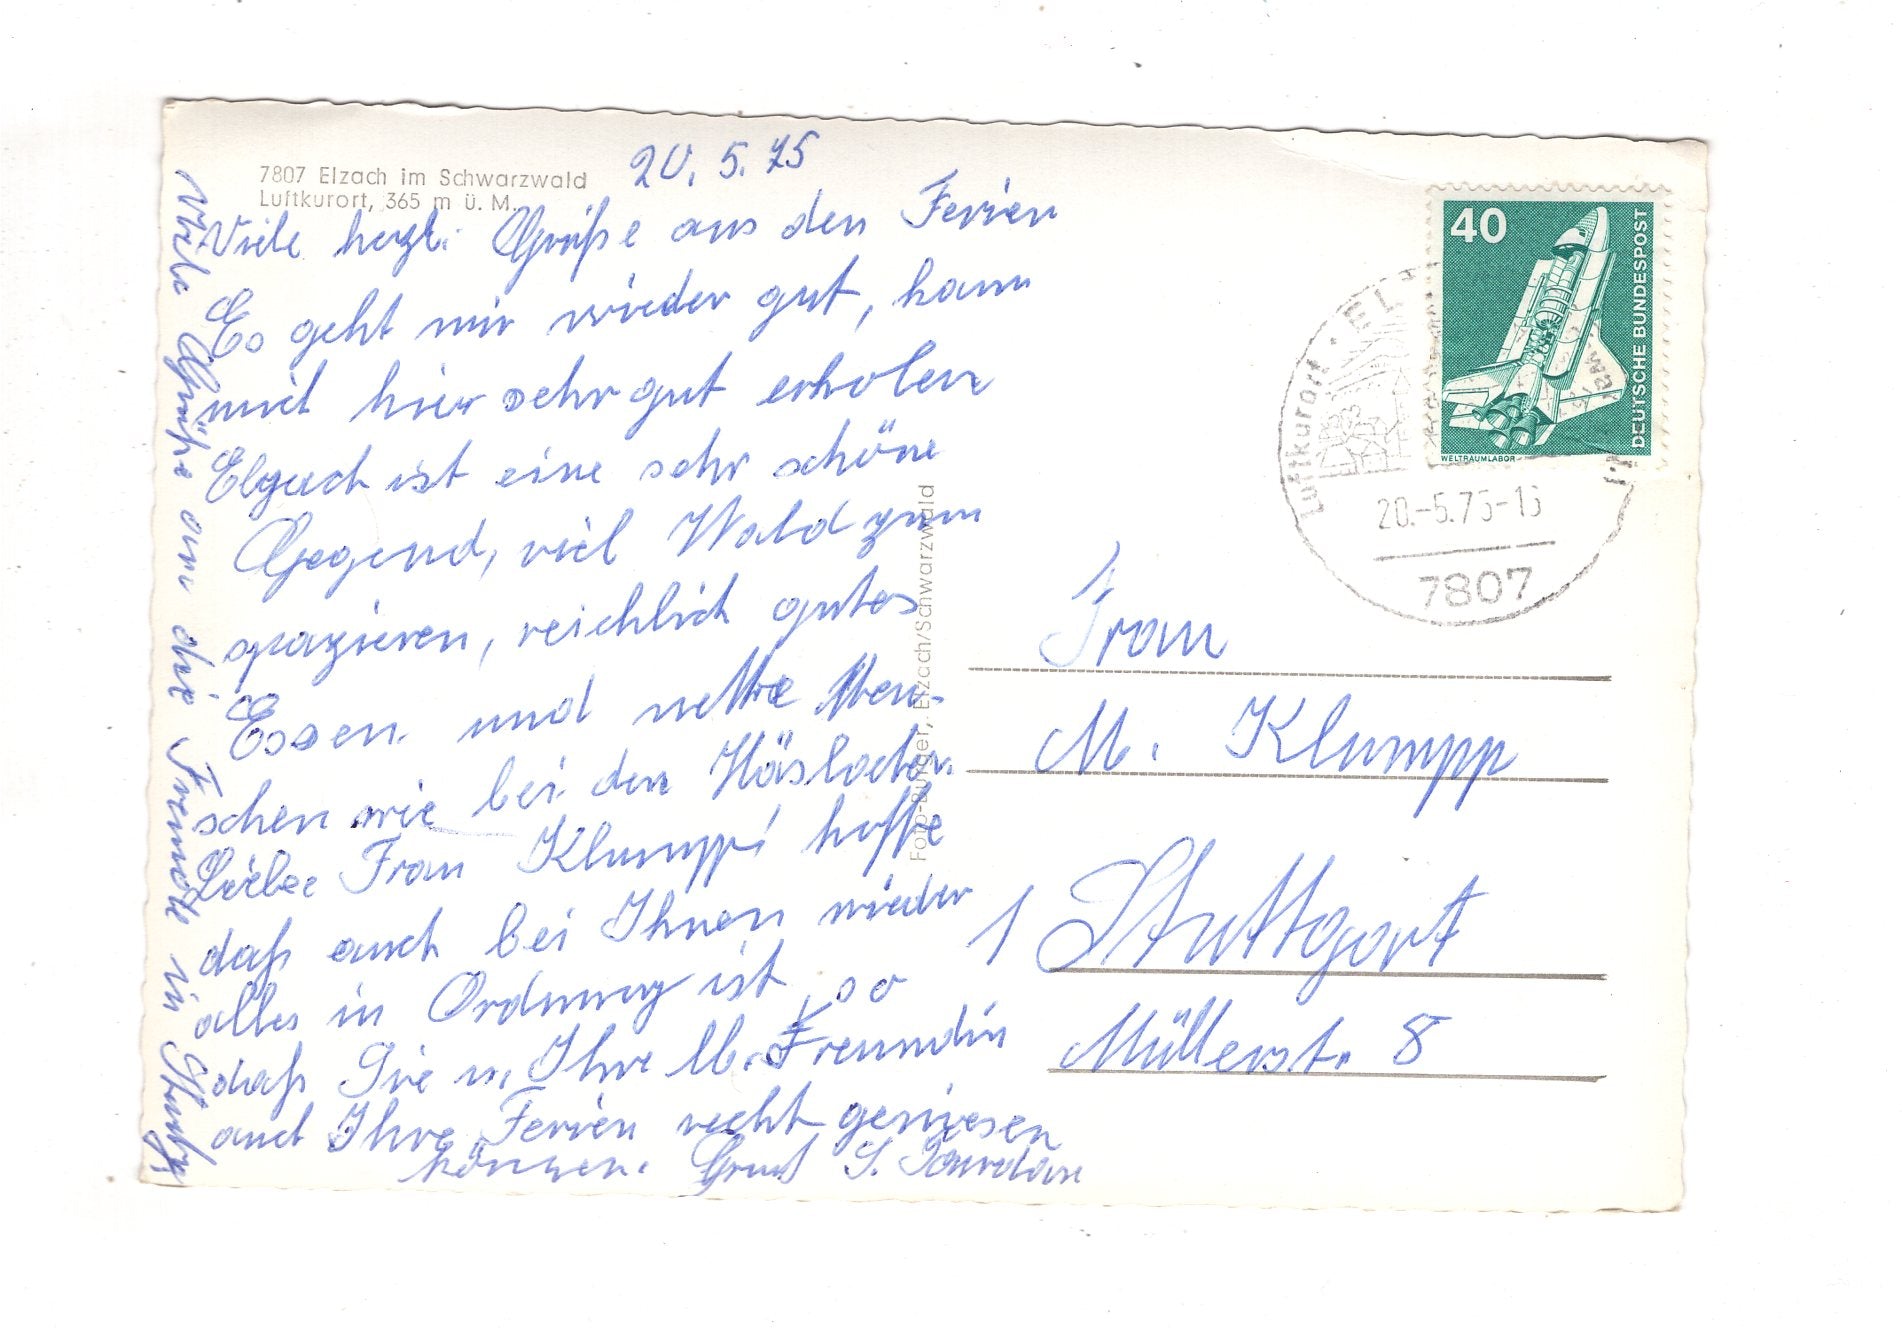 7807 Elzach im Schwarzwald
Luftkurort, 365 m ü. M.
20. 5. 75
Viele herzl. Grüße aus den Ferien
Es geht mir wieder gut, kann
mich hier sehr gut erholen
Elzach ist eine sehr schöne
Gegend, viel Wald zum
spazieren, reichlich gutes
Essen und nette Men-
schen wie bei den
Liebe Frau Klumpp! hoffe
daß auch bei Ihnen wieder
alles in Ordnung ist, so
daß Sie u. Ihre lb. Freundin
auch Ihre Ferien recht geniesen
können. Gruß S.
Viele Grüße an die Freunde in Stuttg.
Foto-Burger, Elzach/Schwarzwald
40
DEUTSCHE BUNDESPOST
WELTRAUMLABOR
Luftkurort · ELZ
20.-5.75-16
7807
Frau
M. Klumpp
1 Stuttgart
Müllerstr. 8